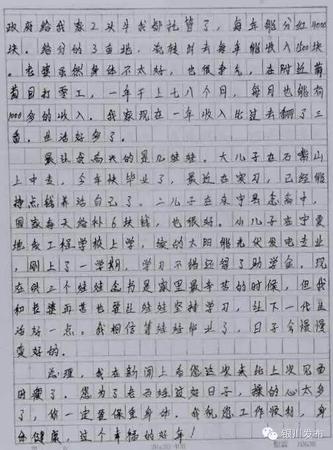 政府给我家2头牛我都托管了，每年能分红4000
块。给分的3亩地，流转出去每年能收入
老婆虽然身体不太好，也很争气，在附近葡
萄园打零工，一年干上七八个月，每月也能有
1000多的收入。我家现在一年收入比过去翻了三
番，生活好多了。
最让高兴的是几娃娃。大儿子在石嘴山
上中专，今年快毕业了，最近在实习，已经能
挣点钱养活自己了。二儿子在永宁县念高中，
国家每天给补6块钱，也很好。小儿子在宁夏
地工程学校上学，读的太阳能光伏发电专业
，刚上了一学期，学习不错还得了助学金。现
在供三个娃娃念书是家里最辛苦的时候，但我
和老婆再苦也要让娃娃坚持学习，让下一代生
活好一点。我相信等娃娃毕业了，日子会慢慢
变好的。
总理，我在新闻上看您这次来比上次见面
时瘦了。您为了老百姓过好日子，操的心太多
了，你一定要保重身体。我祝您工作顺利，身
体健康，过个幸福的好年！
银川发布